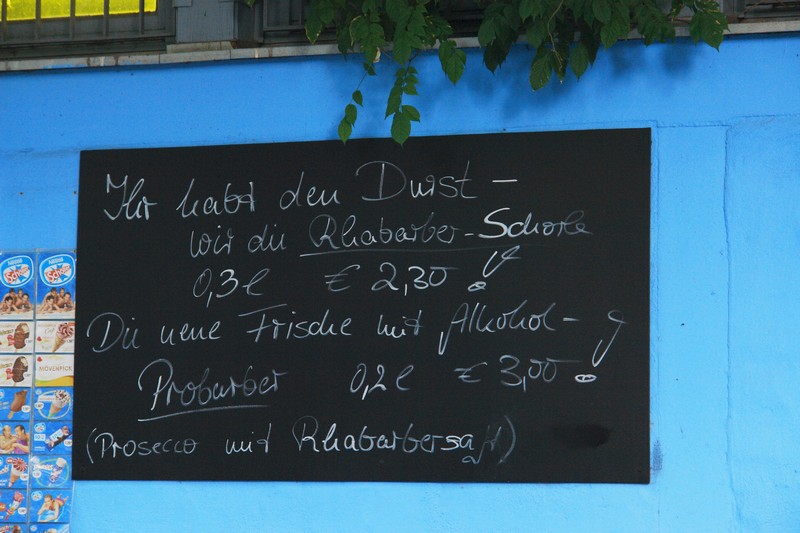 Ihr habt den Durst -
wir die Rhabarber-Schorle
0,3l € 2,30 !
Die neue Frische mit Alkohol - !
Probarber 0,2l € 3,00
(Prosecco mit Rhabarbersaft)
MÖVENPICK